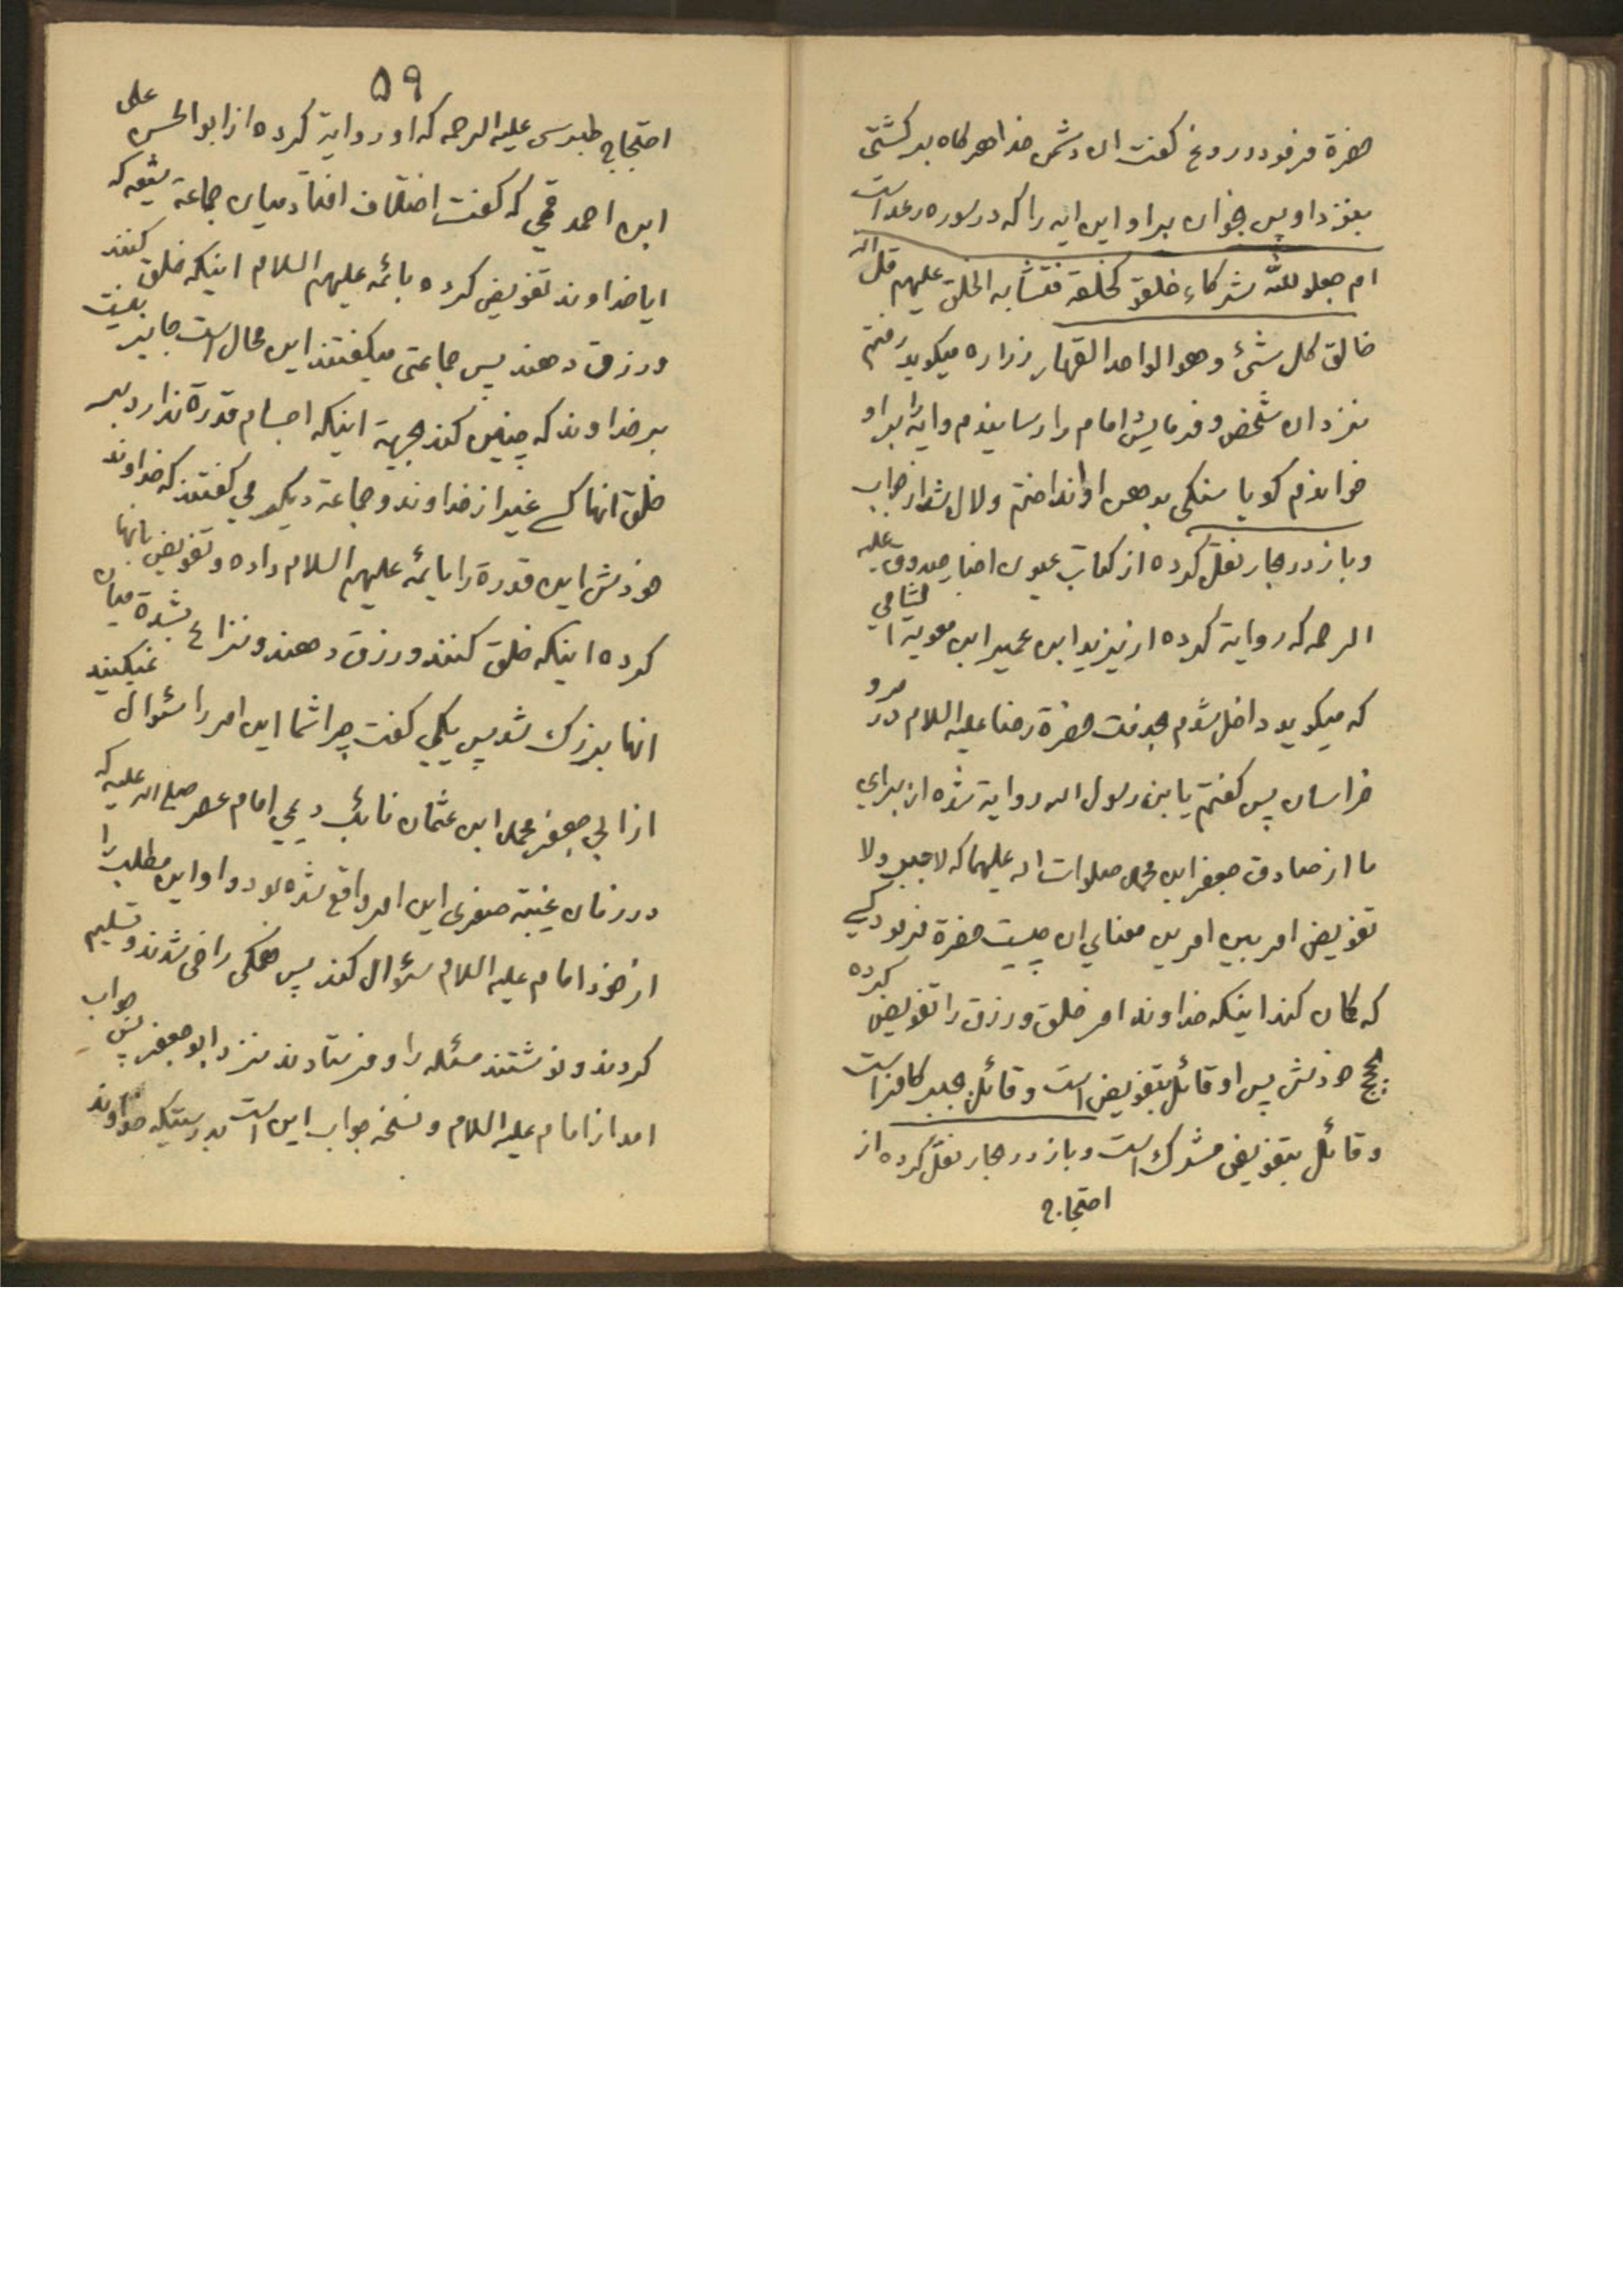 حضرة فرمود دروغ گفت ان دشمن خدا هرگاه برگشتی
بنزد او پس بخوان بر او این ایه را که در سوره رعد است
ام جعلو لله شرکاء خلقو کخلقه فتشابه الخلق علیهم قل الله
خالق کل شیء و هو الواحد القهار زراره میگوید رفتم
نزد ان شخص و فرمایش امام را رسانیدم و ایه را بر او
خواندم گویا سنگی بدهن او انداختم و لال شد از جواب
و باز در بحار نقل کرده از کتاب عیون اخبار صدوق علیه
الرحمه که روایة کرده از یزید ابن عمیر ابن معویه الشامی
که میگوید داخل شدم بخدمت حضرة رضا علیه السلام در مرو
خراسان پس گفتم یابن رسول الله روایة شده از برای
ما از صادق جعفر ابن محمد صلوات الله علیهما که لا جبر ولا
تفویض امر بین امرین معنای ان چیست حضرة فرمود کسی
که گمان کند اینکه خداوند امر خلق و رزق را تفویض کرده
بحجج خودش پس او قائل بتفویض است و قائل بجبر کافر است
و قائل بتفویض مشرک است و باز در بحار نقل کرده از
احتجاج
۵۹
احتجاج طبرسی علیه الرحمه که او روایة کرده از ابو الحسن علی
ابن احمد قمی که گفت اختلاف افتاد میان جماعة شیعه که
ایا خداوند تفویض کرده بائمه علیهم السلام اینکه خلق کنند
و رزق دهند پس جماعتی میگفتند این محال است جایز نیست
بر خداوند که چنین کند بجهة اینکه اجسام قدرة ندارد بر
خلق انها کسی غیر از خداوند و جماعة دیگر می گفتند که خداوند
خودش این قدرة را بائمه علیهم السلام داده و تفویض بانها
کرده اینکه خلق کنند و رزق دهند و نزاع بشدة میان
انها بزرک شد پس یکی گفت چرا شما این امر را سئوال نمیکنید
از ابی جعفر محمد ابن عثمان نائب دویمی امام عصر صلی الله علیه که
در زمان غیبة صغری این امر واقع شده بود و او این مطلب را
از خود امام علیه السلام سئوال کند پس همگی راضی شدند و تسلیم
کردند و نوشتند مسئله را و فرستادند نزد ابو جعفر پس جواب
امد از امام علیه السلام و نسخه جواب این است بدرستیکه خداوند